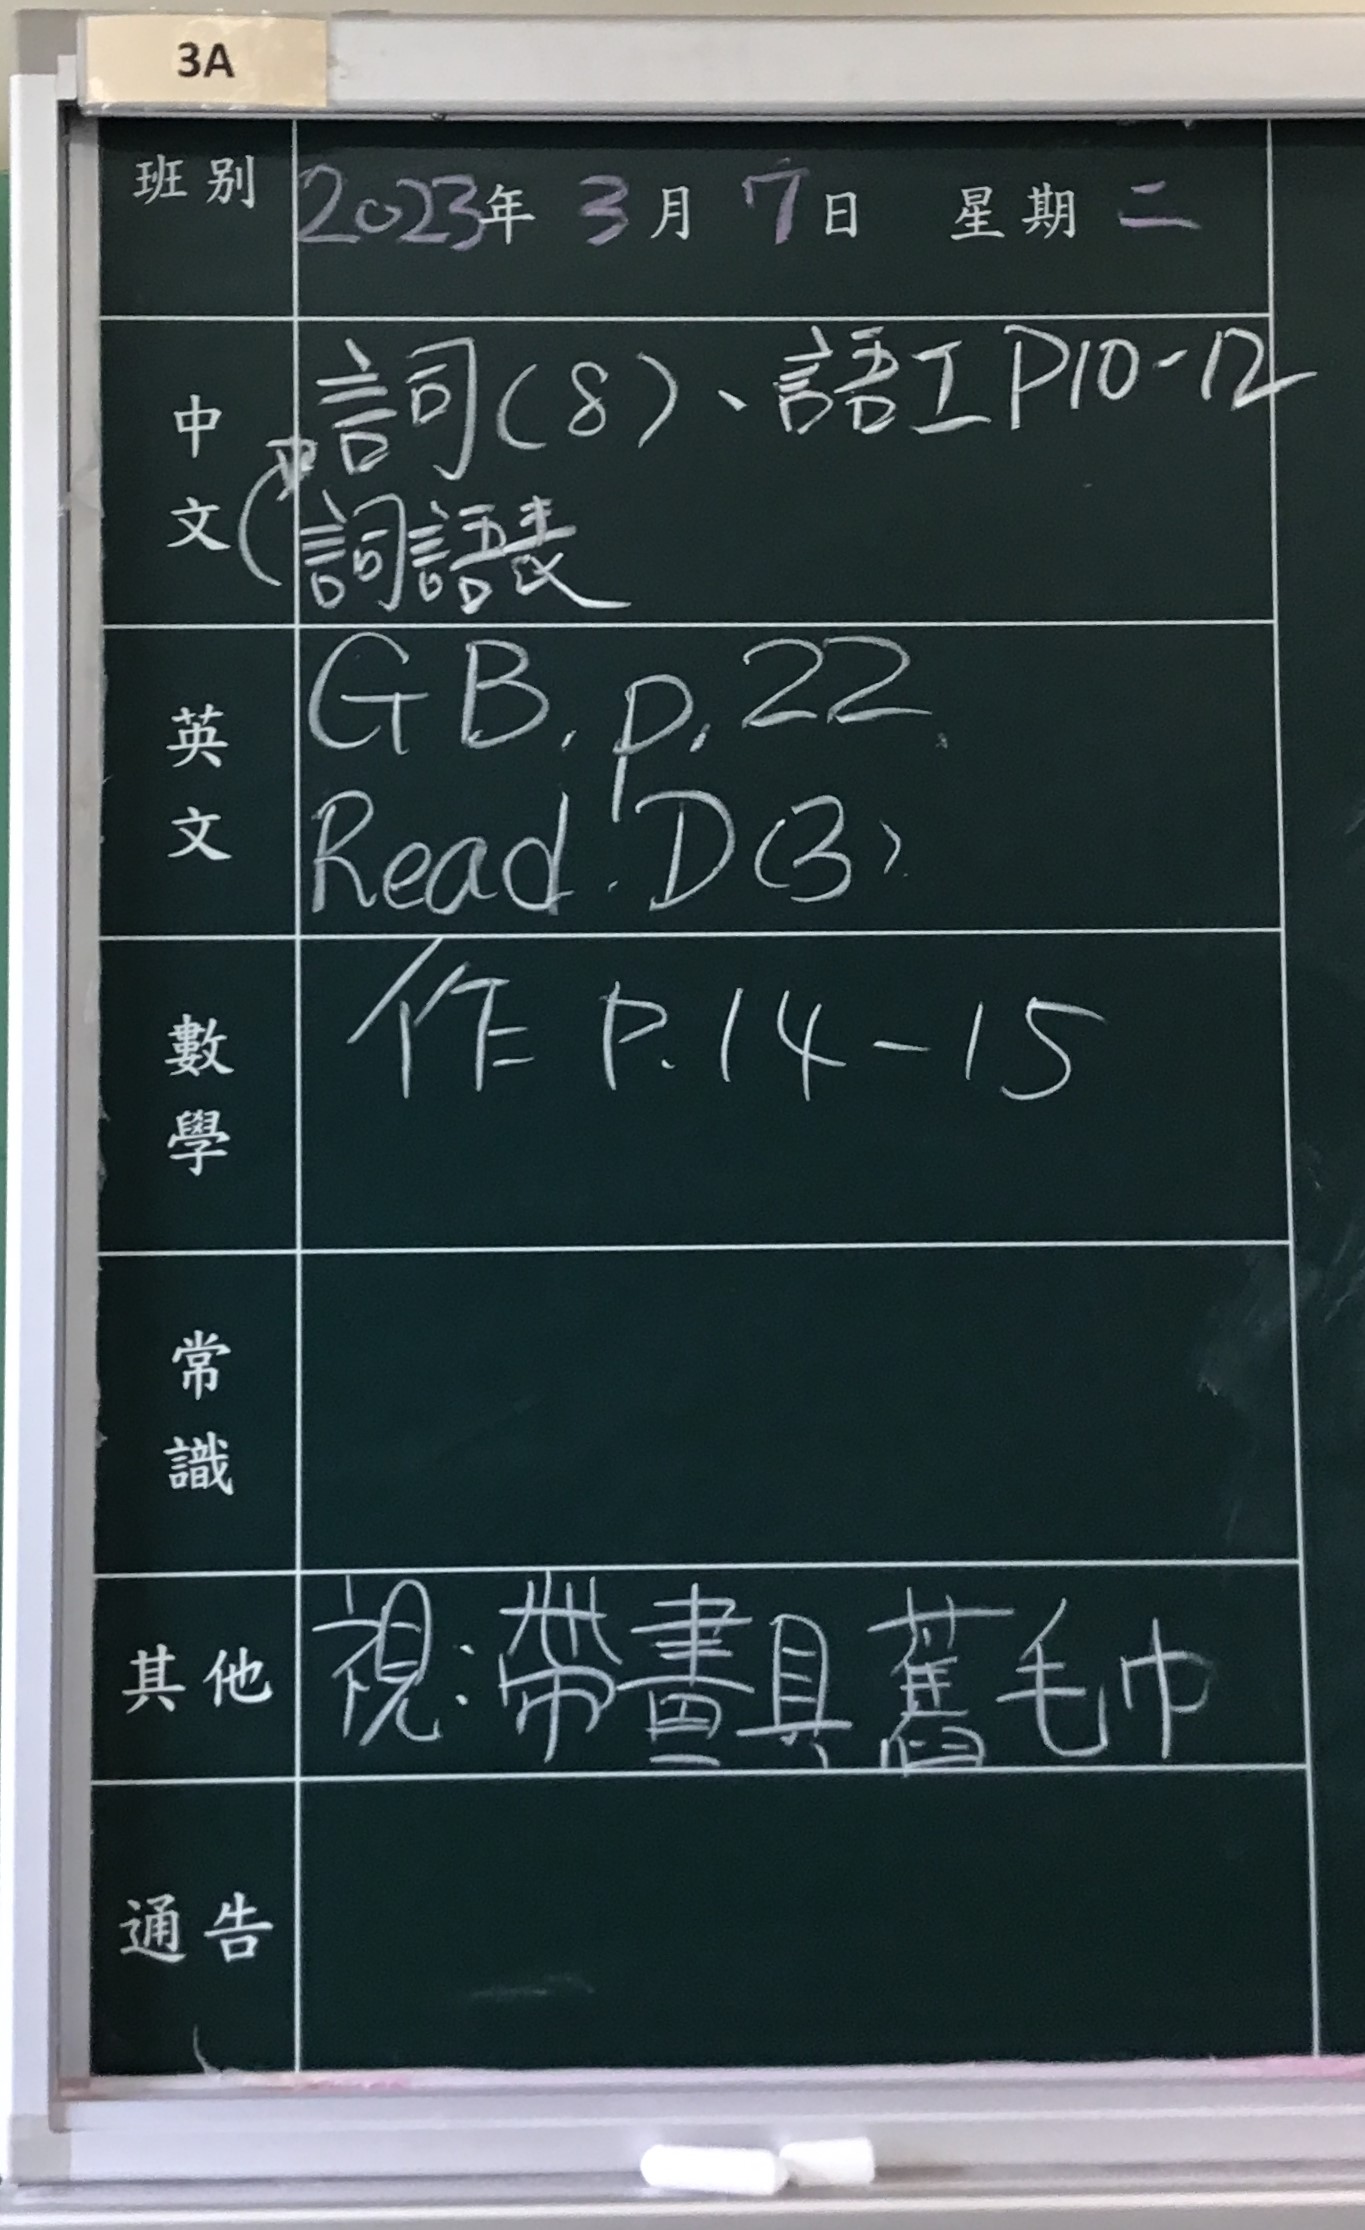 3A
班別 2023年 3月 7日 星期二
中文 詞(8)、語工P10-12
詞語表
英文 GB. p. 22
Read. D(3)
數學 作 P.14-15
常識
其他 視:帶畫具舊毛巾
通告